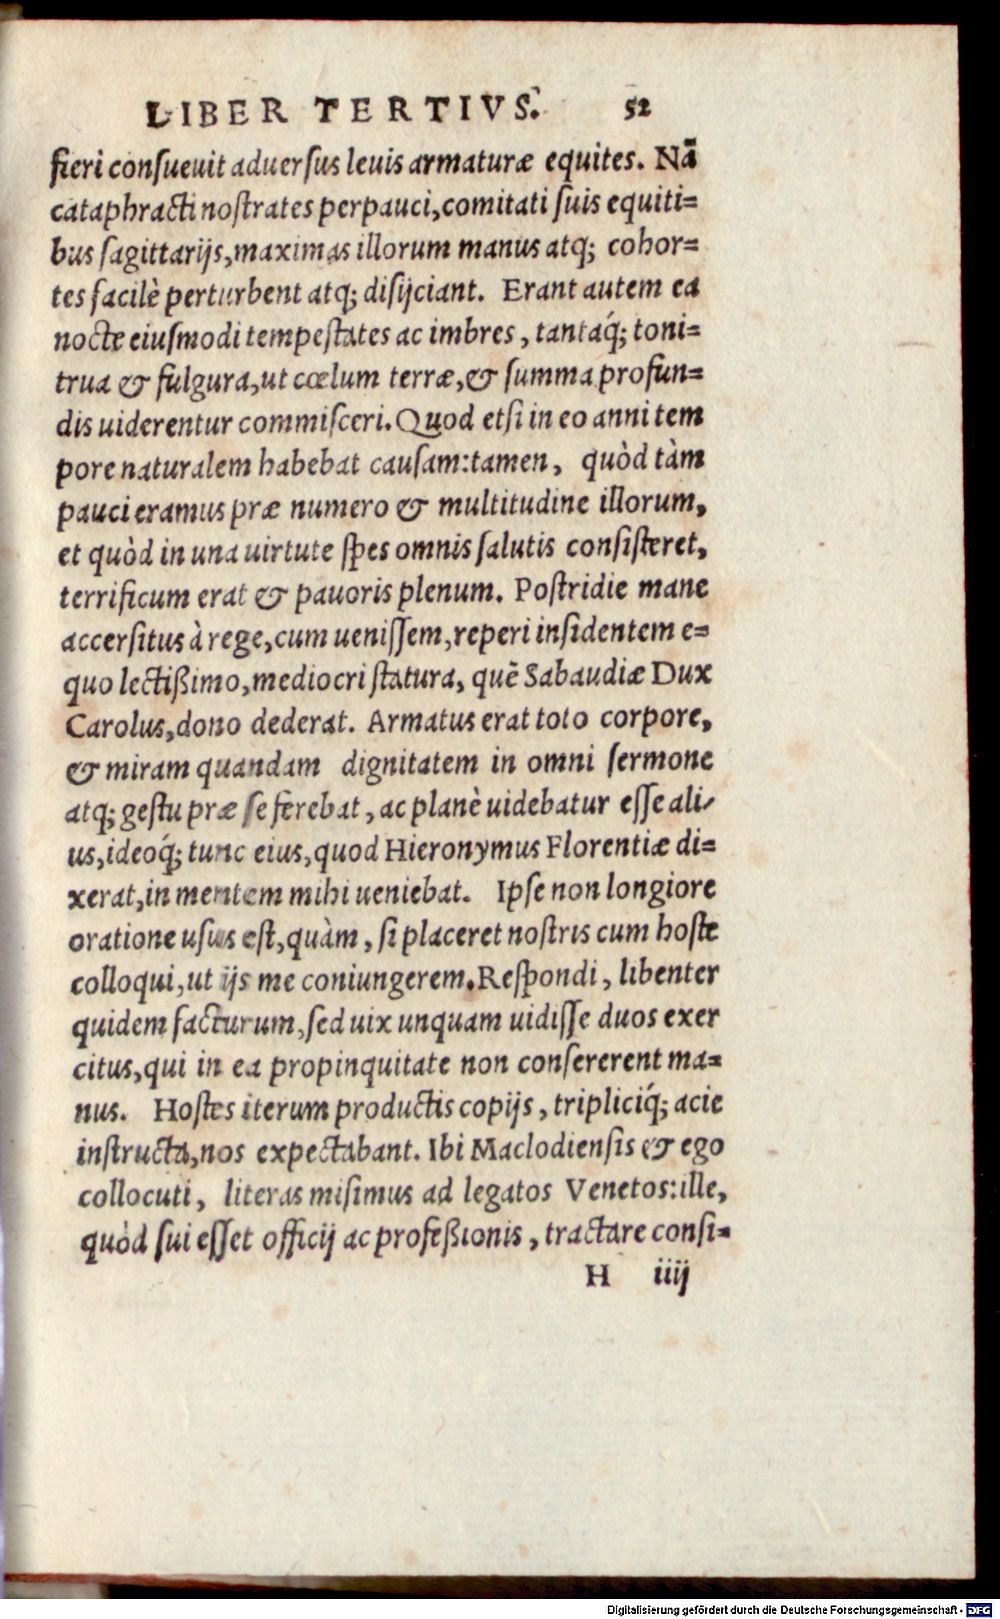 LIBER TERTIVS. 52
fieri consueuit aduersus leuis armaturæ equites. Nā
cataphracti nostrates perpauci, comitati suis equiti=
bus sagittarijs, maximas illorum manus atq; cohor=
tes facilè perturbent atq; disijciant. Erant autem ea
nocte eiusmodi tempestates ac imbres, tantaq́; toni=
trua & fulgura, ut cœlum terræ, & summa profun=
dis uiderentur commisceri. Quod etsi in eo anni tem
pore naturalem habebat causam: tamen, quòd tàm
pauci eramus præ numero & multitudine illorum,
et quòd in una uirtute spes omnis salutis consisteret,
terrificum erat & pauoris plenum. Postridie mane
accersitus à rege, cum uenissem, reperi insidentem e=
quo lectißimo, mediocri statura, quē Sabaudiæ Dux
Carolus, dono dederat. Armatus erat toto corpore,
& miram quandam dignitatem in omni sermone
atq; gestu præ se ferebat, ac planè uidebatur esse ali/
us, ideoq́; tunc eius, quod Hieronymus Florentiæ di=
xerat, in mentem mihi ueniebat. Ipse non longiore
oratione usus est, quàm, si placeret nostris cum hoste
colloqui, ut ijs me coniungerem. Respondi, libenter
quidem facturum, sed uix unquam uidisse duos exer
citus, qui in ea propinquitate non consererent ma=
nus. Hostes iterum productis copijs, tripliciq́; acie
instructa, nos expectabant. Ibi Maclodiensis & ego
collocuti, literas misimus ad legatos Venetos: ille,
quòd sui esset officij ac profeßionis, tractare consi=
H iiij
Digitalisierung gefördert durch die Deutsche Forschungsgemeinschaft - DFG